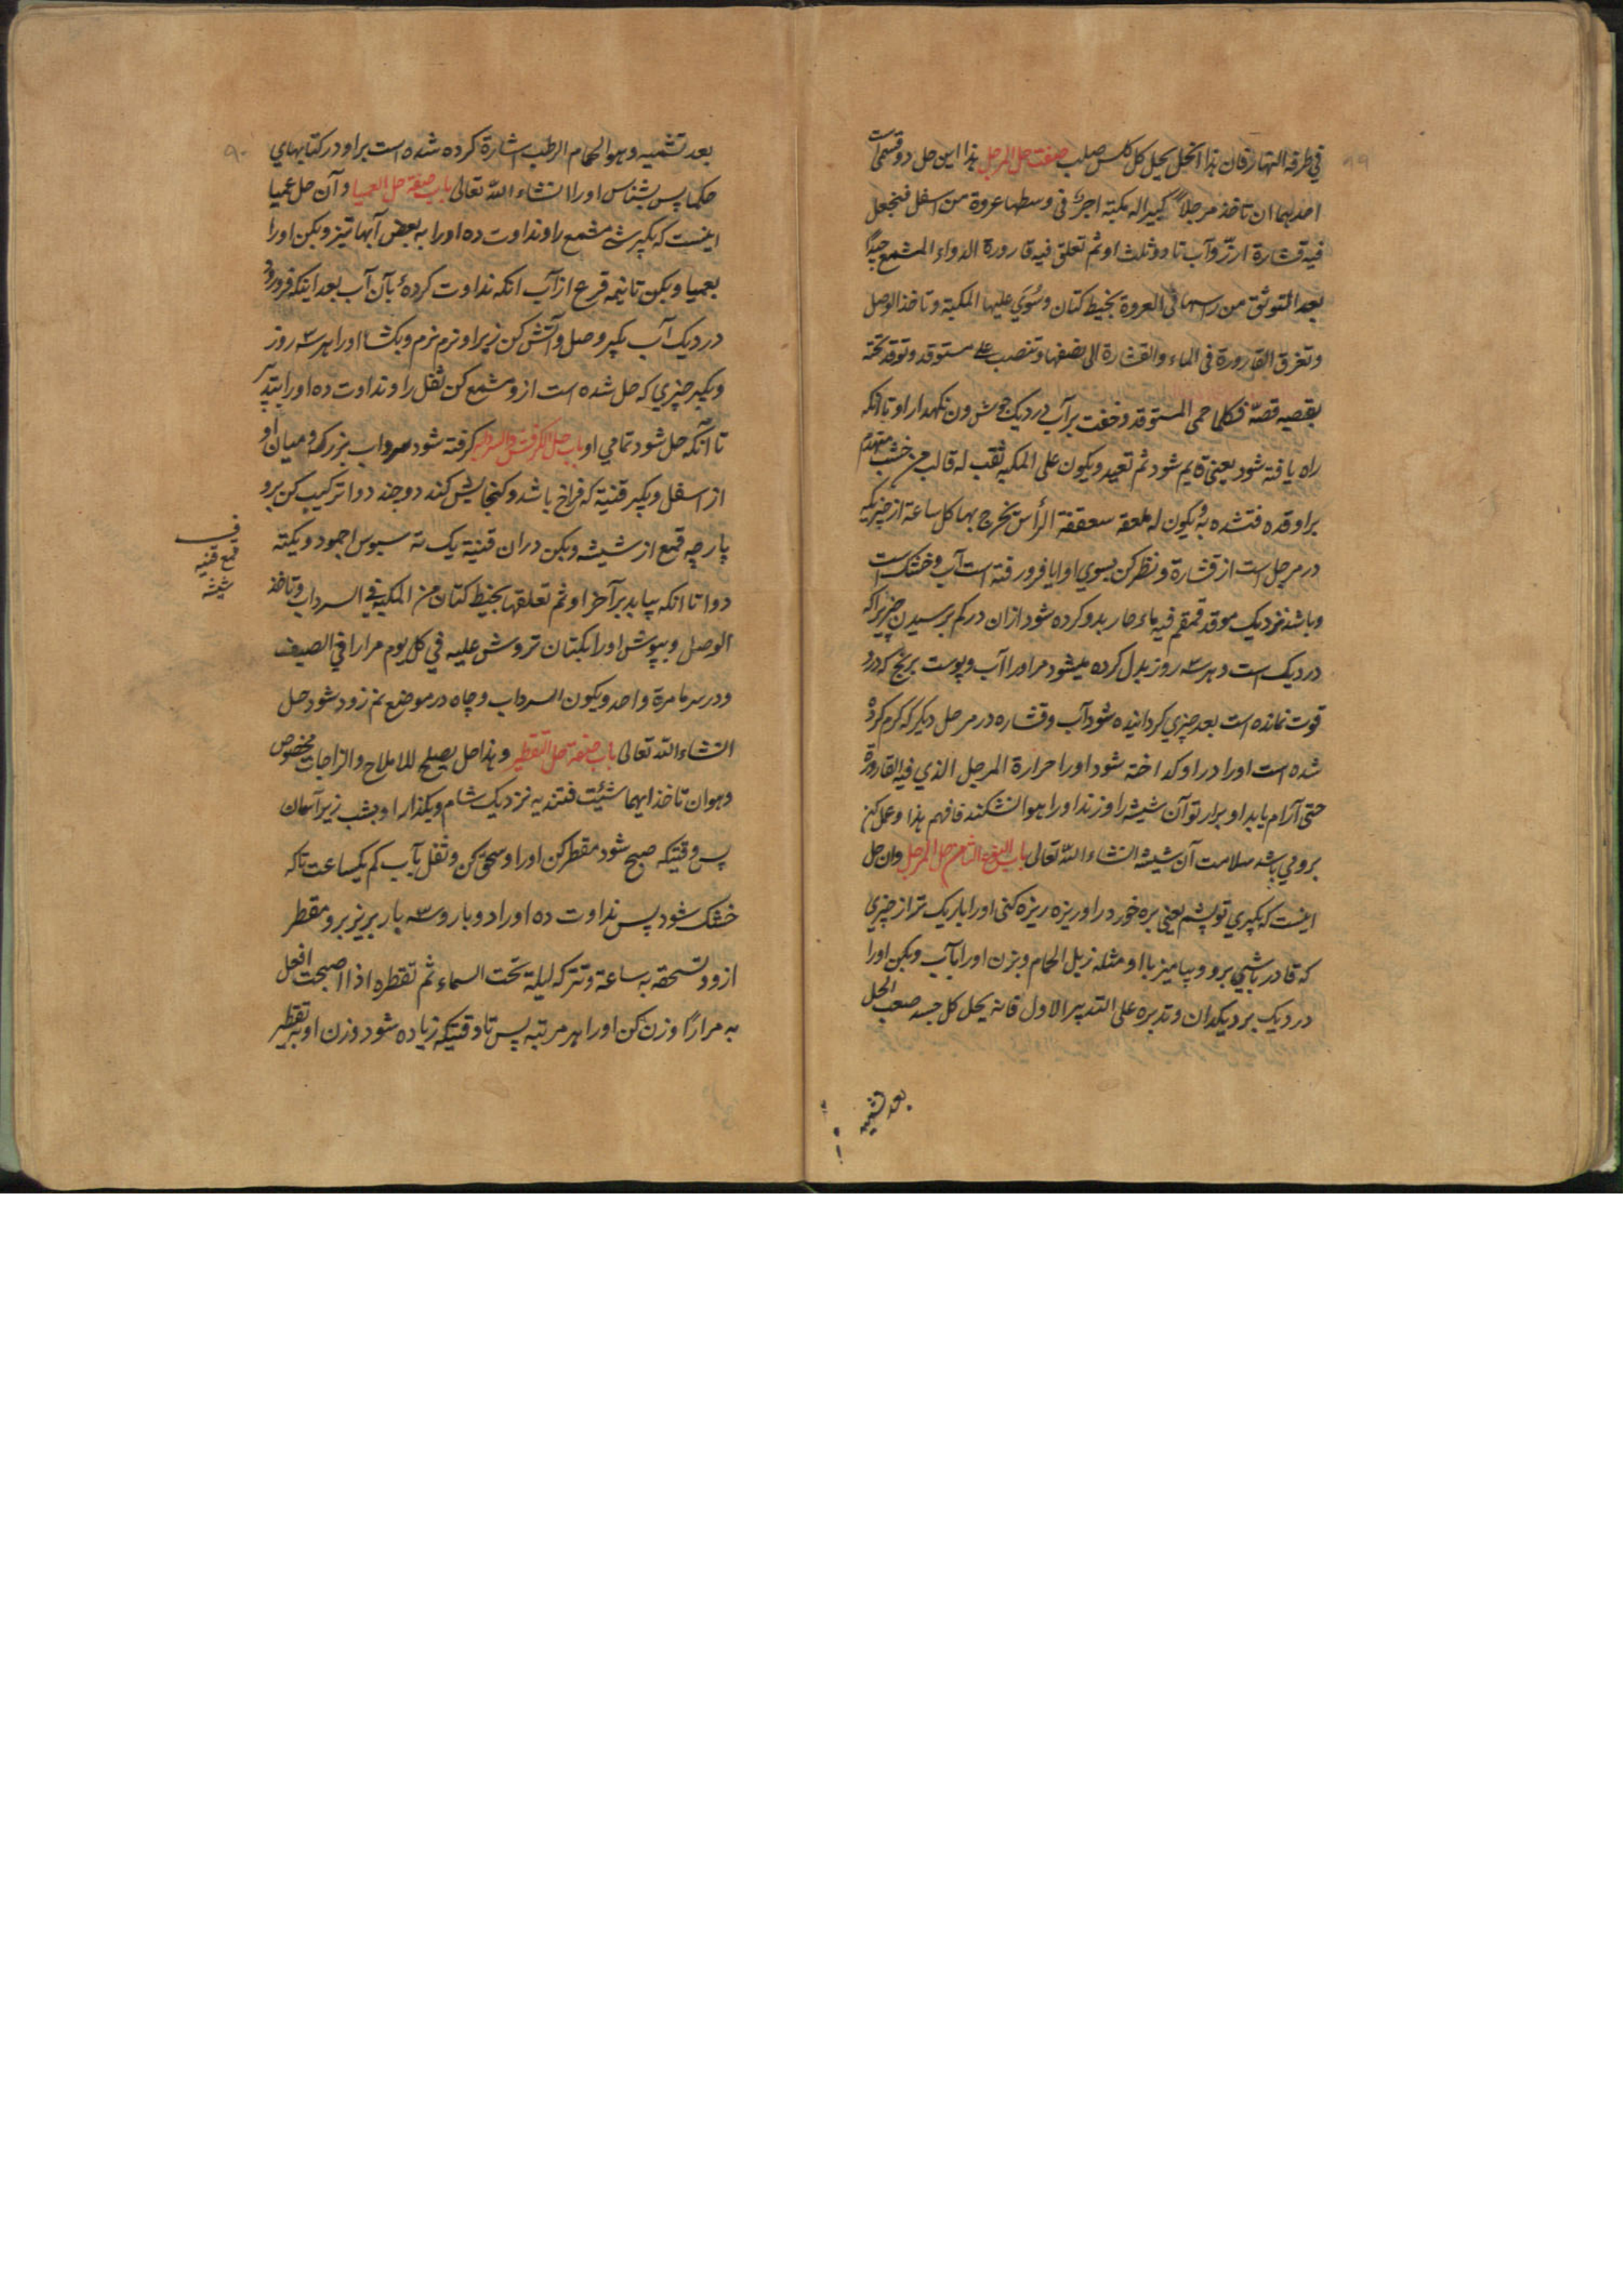 في طرفه النهار فان هذا الخل يحل كل كلس صلب صفت حل المرجل هذا این حل دو قسم است
احدیهما ان تاخذ مرجلاً کبیرا له مکبة اجرّ فی وسطها عروة من اسفل فتجعل
فیه قشارة ارزّ و آب تا دو ثلث او ثم تعلق فیه قارورة الدواء المشمع جیداً
بعد التوثق من راسها فی العروة بخیط کتان و سُوّي علیها المکبة و تاخذ الوصل
و تغرق القارورة فی الماء والقشارة الی نصفها و تنصب علی مستوقد و توقد تحته
بقصبه قصبة فکلما حمی المستوقد و خفت بر آب در دیک جوش ون نکهدار او تا انکه
راه یافته شود یعنی قایم شود ثم تعید و یکون علی المکبة ثقب له قالب من خشب مهندم
براو قده فتشده به و یکون له ملعقه معققة الرأس تخرج بها کل ساعة از چیزیکه
در مرجل است از قشارة و نظر کن بسوی او ایا فرو رفته است آب و خشک است
و باشد نزدیک موقد قمقم فیه ماء حار بدو کرده شود ازان در کم بر سیدن چیزیراکه
در دیک است و هر سه روز بدل کرده میشود مر اورا آب و پوست برنج که درو
قوت نمانده است بعد چیزی کردانیده شود آب و قشاره در مرجل دیکر که کرم کرده
شده است اورا در او کداخته شود اورا حرارة المرجل الذي فیه القارورة
حتی آرام یابد او برار تو آن شیشه را و زند اورا هوا نشکند فافهم هذا و عمل کن
بروي باشد سلامت آن شیشه انشاء الله تعالی باب النوع الثامن حل المرجل و ان حل
اینست که بکیری تو پشم یعنی بره خورد را و ریزه ریزه کنی اورا باریک تر از چیزی
که قادر باشی برو و بیامیز با او مثله زبل الحمام و بزن اورا بآب و بکن اورا
در دیک بر دیکدان و تدبره علی التدبیر الاول فانه یحل کل جسد صعب الحل
بعد تشمیه
بعد تشمیه و هو الحمام الرطب اشارة کرده شده است براو در کتابهاي
حکما پس بشناس اورا انشاء الله تعالی باب صفة حل العمیا و آن حل عمیا
اینست که بکیر شئ مشمع را و نداوت ده اورا به بعض آبها تیز و بکن اورا
بعمیا و بکن تا نیمه قرع از آب انکه نداوت کردهٔ بآن آب بعد اینکه فرو رود
در دیک آب بکیر وصل و آتش کن زیر او نرم نرم و بکشا اورا هر سه روز
و بکیر چیزي که حل شده است ازو و مشمع کن ثفل را و نداوت ده اورا بتدبیر
تا انکه حل شود تمامي او باب حل الکرفس و السرداب کرفته شود سرداب بزرکه و میان او
از اسفل و بکیر قنینة که فراخ باشد و کنجایش کند دو چند دوا ترکیب کن برو
پارچه قمع از شیشه و بکن دران قنینة یک ته سبوس اجمود و یکته
دوا تا انکه بیاید بر آخر او ثم تعلقها بخیط کتان من المکبة فی السرداب و تاخذ
الوصل و بپوش اورا بکتان تروش علیه في کل یوم مرارا في الصیف
و در سرما مرة واحد و یکون السرداب و چاه در موضع نم زود شود حل
انشاء الله تعالی باب صفة حل التقطیر و هذا حل یصلح للاملاح و الزاجات مخصوص
و هو ان تاخذ ایهما شئیت فتندیه نزدیک شام و بکذار او بشب زیر آسمان
پس وقتیکه صبح شود مقطر کن اورا و سحق کن و ثفل بآب کم یکساعت تا که
خشک شود پس نداوت ده اورا دو بار و سه بار بریز برو مقطر
ازو و تسحقه به ساعة و تترکه لیلة تحت السماء ثم تقطره اذا اصبحت افعل
به مراراً وزن کن اورا هر مرتبه پس تا وقتیکه زیاده شود وزن او به تقطیر
قمع قنینه
شیشه